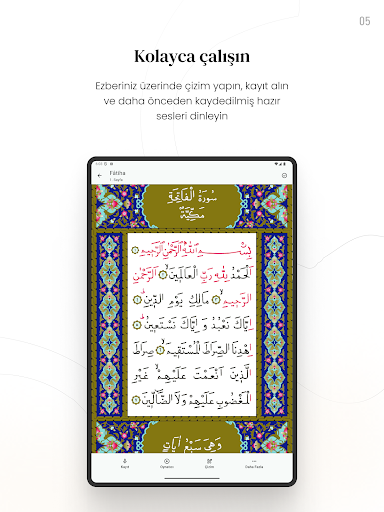 05
Kolayca çalışın
Ezberiniz üzerinde çizim yapın, kayıt alın
ve daha önceden kaydedilmiş hazır
sesleri dinleyin
Fâtiha
1. Sayfa
سُورَةُ الْفَاتِحَةِ
مَكِّيَّةٌ
بِسْمِ اللّٰهِ الرَّحْمٰنِ الرَّحِيمِ ١
اَلْحَمْدُ لِلّٰهِ رَبِّ الْعَالَمِينَ ٢ اَلرَّحْمٰنِ
الرَّحِيمِ ٣ مَالِكِ يَوْمِ الدِّينِ ٤
اِيَّاكَ نَعْبُدُ وَاِيَّاكَ نَسْتَعِينُ ٥
اِهْدِنَا الصِّرَاطَ الْمُسْتَقِيمَ ٦ صِرَاطَ
الَّذِينَ اَنْعَمْتَ عَلَيْهِمْ غَيْرِ
الْمَغْضُوبِ عَلَيْهِمْ وَلَا الضَّالِّينَ ٧
وَهِيَ سَبْعُ اٰيَاتٍ
Kayıt
Oynatıcı
Çizim
Daha Fazla